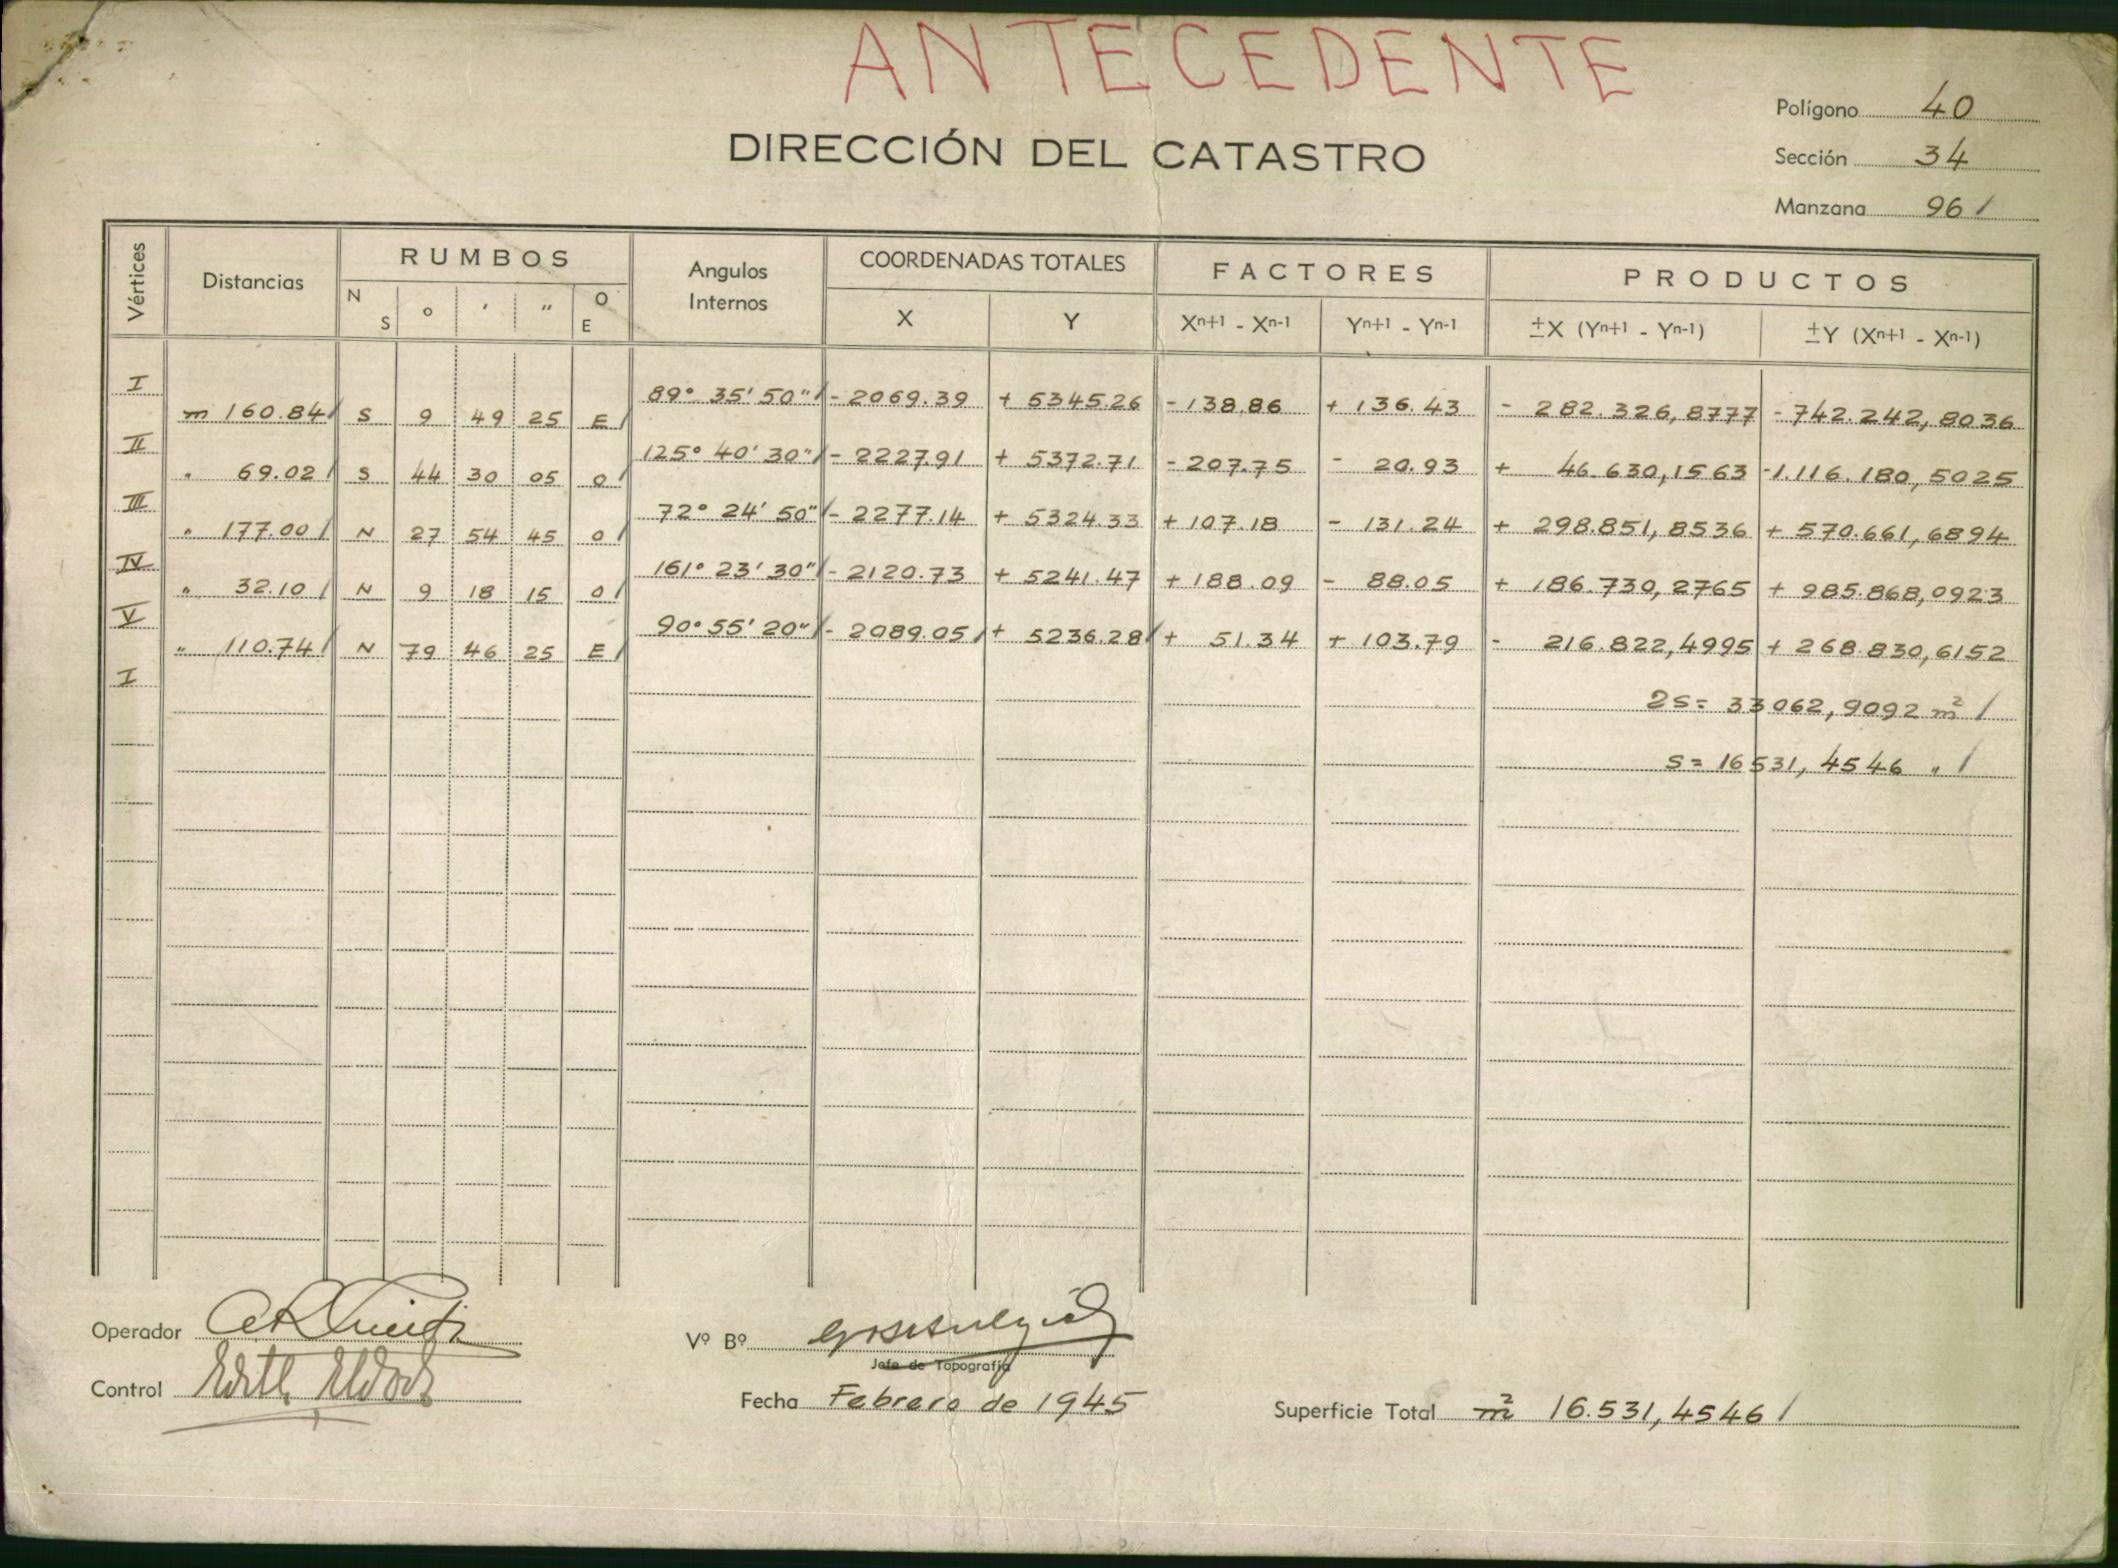 ANTECEDENTE
Polígono 40
DIRECCIÓN DEL CATASTRO
Sección 34
Manzana 96 /
Vértices Distancias RUMBOS Angulos Internos COORDENADAS TOTALES FACTORES PRODUCTOS
N S ° ' " O E X Y Xn+1 - Xn-1 Yn+1 - Yn-1 ±X (Yn+1 - Yn-1) ±Y (Xn+1 - Xn-1)
I 89° 35' 50" / - 2069.39 + 5345.26 - 138.86 + 136.43 - 282.326,8777 - 742.242,8036
m 160.84 / S 9 49 25 E /
II 125° 40' 30" / - 2227.91 + 5372.71 - 207.75 - 20.93 + 46.630,1563 - 1.116.180,5025
" 69.02 / S 44 30 05 O /
III 72° 24' 50" / - 2277.14 + 5324.33 + 107.18 - 131.24 + 298.851,8536 + 570.661,6894
" 177.00 / N 27 54 45 O /
IV 161° 23' 30" / - 2120.73 + 5241.47 + 188.09 - 88.05 + 186.730,2765 + 985.868,0923
" 32.10 / N 9 18 15 O /
V 90° 55' 20" / - 2089.05 / + 5236.28 / + 51.34 + 103.79 - 216.822,4995 + 268.830,6152
" 110.74 / N 79 46 25 E /
I
2S = 33062,9092 m² /
S = 16531,4546 " /
Operador
Vº Bº
Jefe de Topografía
Control Edith
Fecha Febrero de 1945
Superficie Total m² 16.531,4546 /